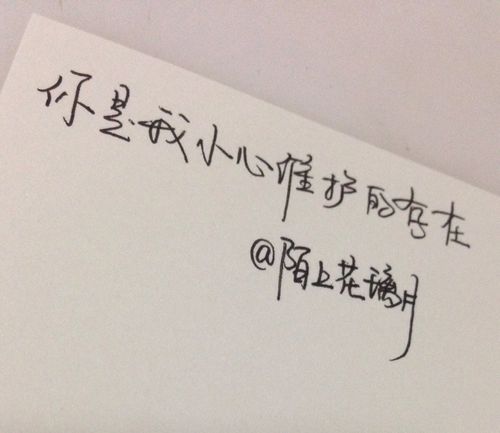 你是我小心维护的存在
@陌上花璃月